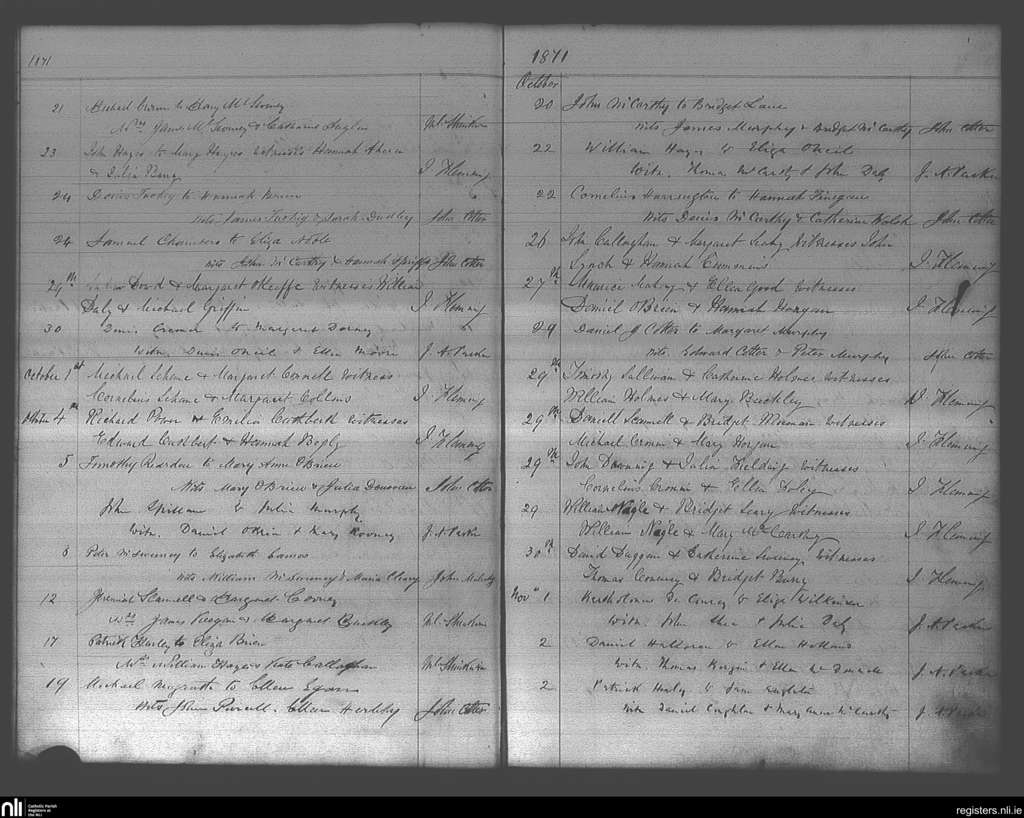 1871
21 Michael to Mary Mc
James Mc & Catharine
23 John Hayes to Mary Hayes witnesses Hannah Ahern
& Julia Barry J Fleming
24 Denis Tuohig to Hannah Brien
wits James Tuohig & Sarah Dudley John Cotter
24 Samuel Chambers to Eliza Noble
wits John McCarthy & Hannah John Cotter
29th David & Margaret OKeeffe witnesses William
Daly & Michael Griffin J Fleming
30 Denis Creamer to Margaret
witn. Denis ONeil & Ellen Moore J. A. Parker
October 1st Michael Sehane & Margaret Connell witness
Cornelius Sehane & Margaret Collins J Fleming
October 4th Richard Power & Emelia Cuthbert witnesses
Edward Cuthbert & Hannah J Fleming
5 Timothy Reardon to Mary Anne OBrien
Wits Mary OBrien & Julia Donovan John Cotter
John Spillane to Julia Murphy
witn. Daniel & Mary J. A. Parker
8 Peter McSweeney to Elizabeth
wits William McSweeney & Maria Cleary John
12 Jeremiah Scannell & Margaret
James Keegan & Margaret Buckley
17 Patrick Hurley to Eliza Brien
William Hayes Kate Callaghan
19 Michael to Ellen Egan
Wits John Purcell. Ellen Herlihy John Cotter
1871
October
20 John McCarthy to Bridget Lane
wits James Murphy & Bridget McCarthy John Cotter
22 William Hayes to Eliza ONeill
witn. Thomas McCarthy & John Daly J. A. Parker
22 Cornelius Harrington to Hannah Finegan
wits Denis McCarthy & Catherine Walsh John Cotter
26 John Callaghan & Margaret Leahy witnesses John
Lynch & Hannah Cummins J. Fleming
27th Maurice & Ellen Good witnesses
Daniel OBrien & Hannah Horgan J. Fleming
29 Daniel J Cotter to Margaret Murphy
wits. Edward Cotter & Peter Murphy John Cotter
29th Timothy Sullivan & Catherine Holmes witnesses
William Holmes & Mary Buckley J. Fleming
29th Daniell Scannell & Bridget witnesses
Michael Cronin & Mary Horgan J. Fleming
29th John Downing & Julia Fielding witnesses
Cornelius Cronin & Ellen Foley J Fleming
29 William Nagle & Bridget Leary witnesses
William Nagle & Mary McCarthy J Fleming
30th David Duggan & Catherine Sweeney witnesses
Thomas Conway & Bridget Barry J Fleming
Nov 1 Bartholomew to Eliza Wilkinson
witn. John & Julia Daly J. A. Parker
2 Daniel Halloran to Ellen Holland
witn. Thomas Horgan & Ellen J. A. Parker
2 Patrick Healy to Jane
witn Daniel Coughlan & Mary Anne McCarthy J. A. Parker
nli
Catholic Parish
Registers at
the NLI
registers.nli.ie